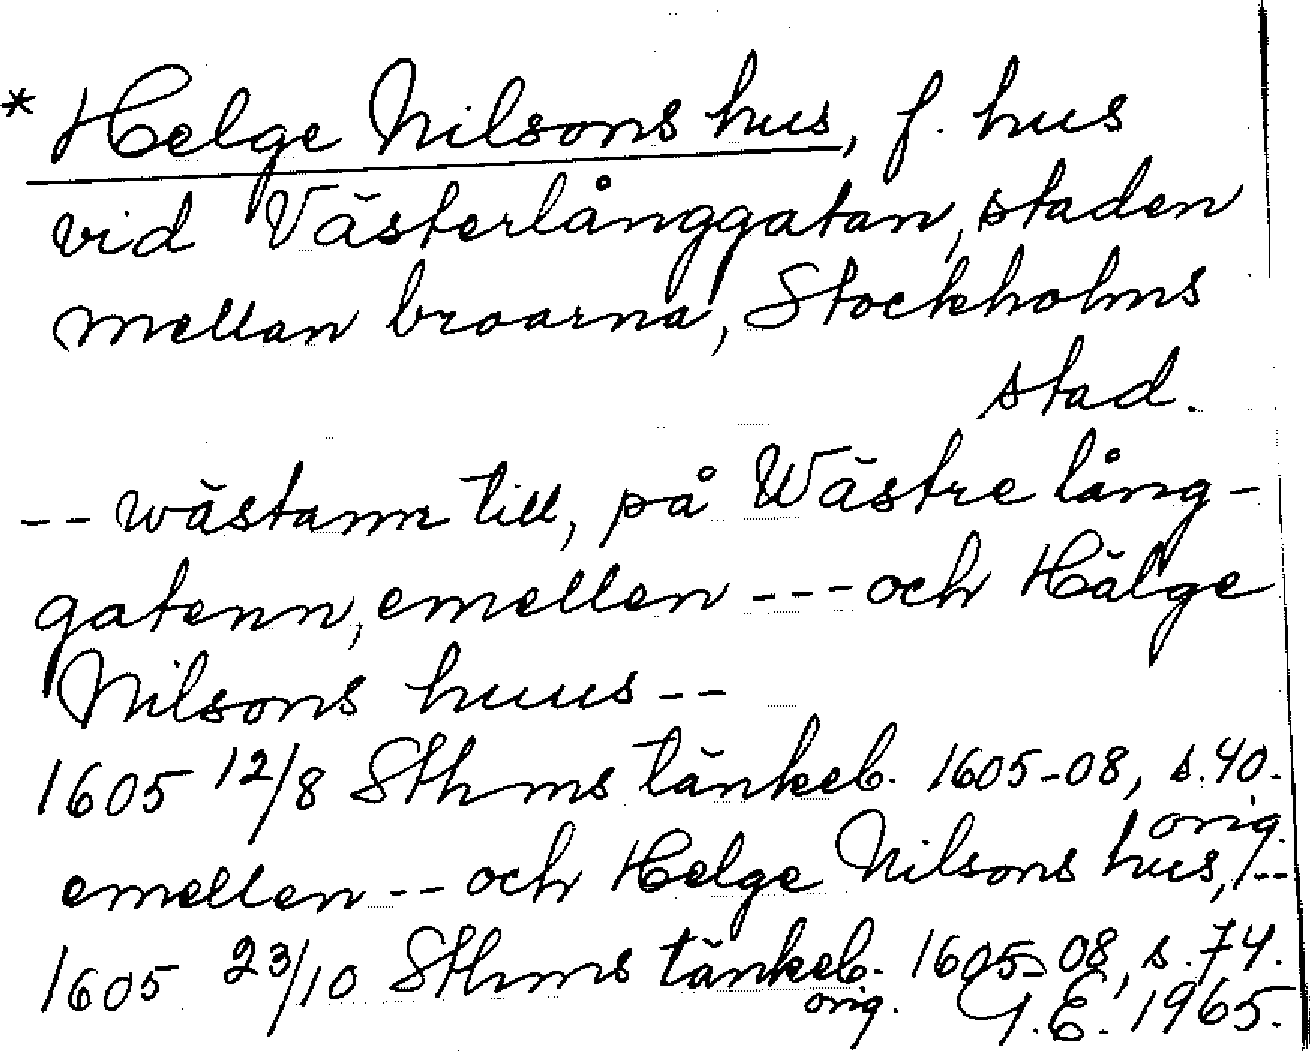 * Helge Nilsons hus, f. hus
vid Västerlånggatan, staden
mellan broarna, Stockholms
stad.
-- wästann till, på Wästre lång-
gatenn, emellen --- och Hälge
Nilsons huus --
1605 12/8 Sthms tänkeb. 1605-08, s. 40.
orig.
emellen -- och Helge Nilsons hus, --
1605 23/10 Sthms tänkeb. 1605-08, s. 74.
orig. G.E. 1965.